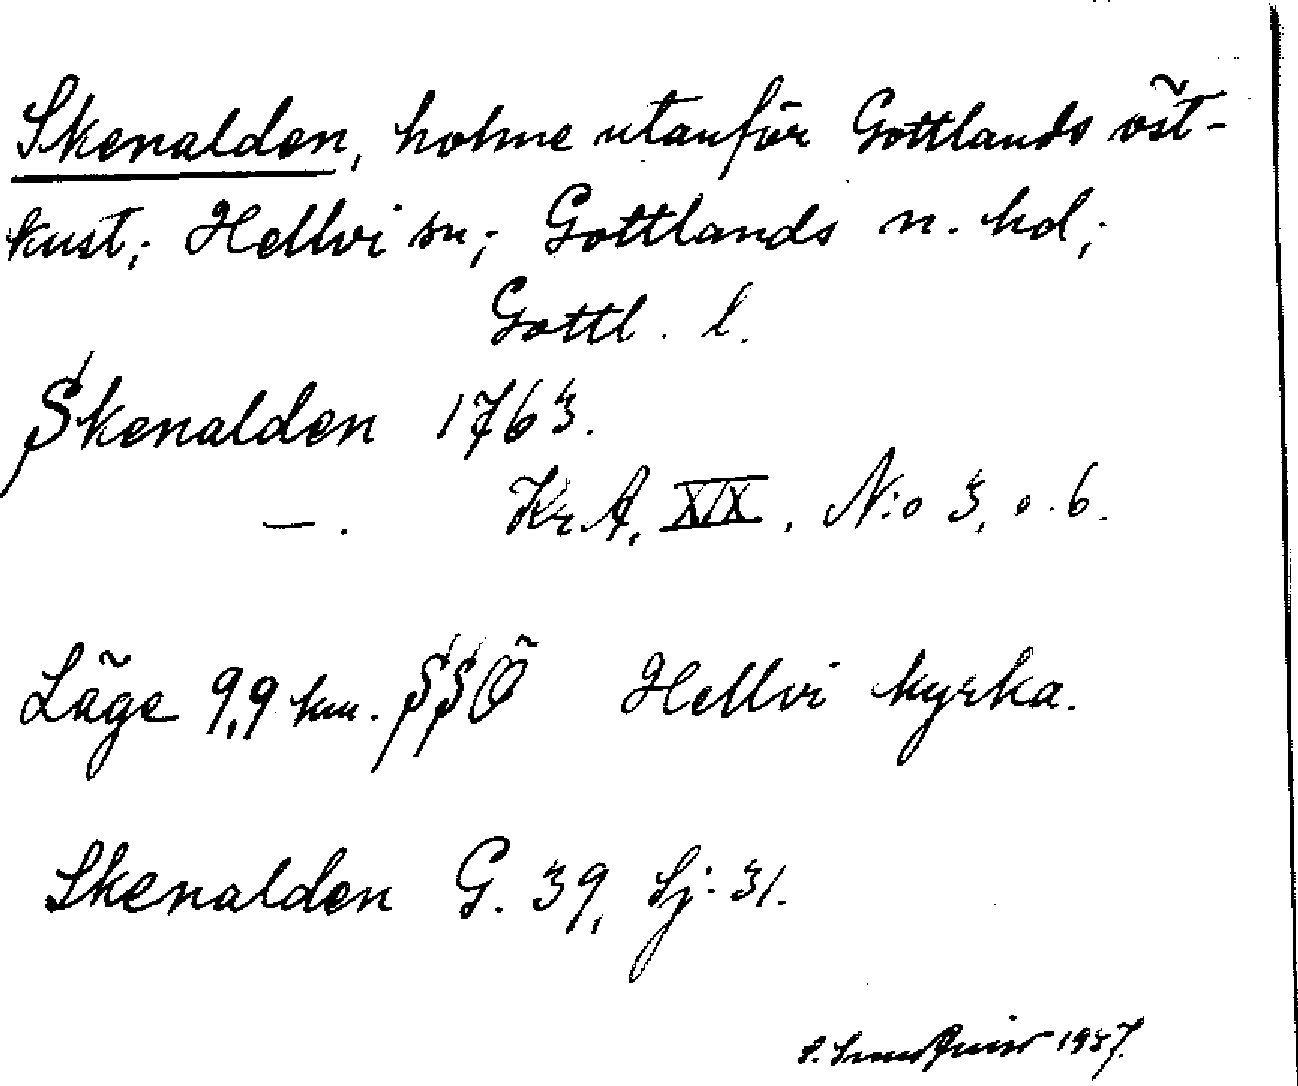 Skenalden, holme utanför Gottlands öst-
kust; Hellvi sn; Gottlands n. hd;
Gottl. l.
Skenalden 1763.
—. Kr.A, XIX. N:o 3, o. 6.
Läge 9,9 km. SSÖ Hellvi kyrka.
Skenalden G. 39, Sj: 31.
1937.